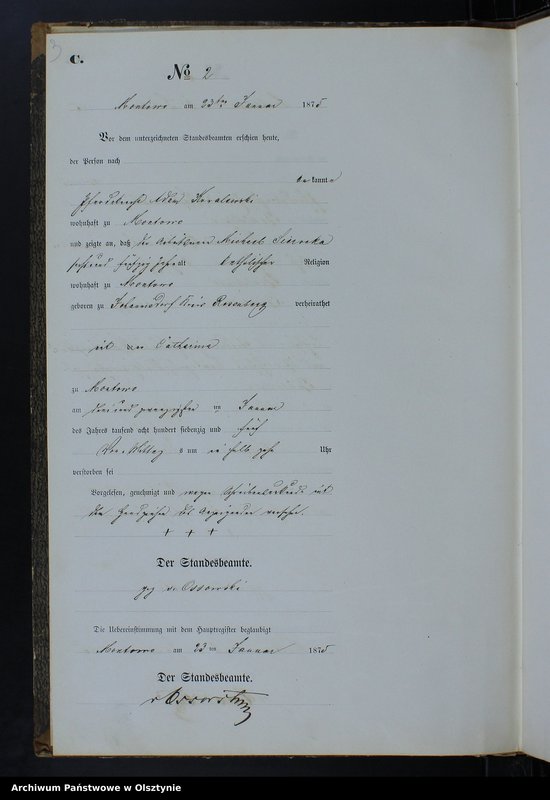 3
C.
No 2
Montowo am 23ten Januar 1875
Vor dem unterzeichneten Standesbeamten erschien heute,
der Person nach
bekannte
Adam Kowalewski
wohnhaft zu Montowo
und zeigte an, daß der Michael
sechsund fünfzig Jahr alt katholischer Religion
wohnhaft zu Montowo
geboren zu Kreis Rosenberg verheirathet
mit der Catharina
zu Montowo
am dreiundzwanzigsten Januar
des Jahres tausend acht hundert siebenzig und fünf
Vor Mittag s um halb Uhr
verstorben sei
Vorgelesen, genehmigt und wegen Schreibensunkunde mit
dem Handzeichen des Anzeigenden versehen.
+ + +
Der Standesbeamte.
gez v. Ossowski
Die Uebereinstimmung mit dem Hauptregister beglaubigt
Montowo am 23 ten Januar 1875
Der Standesbeamte.
v Ossowski
Archiwum Państwowe w Olsztynie